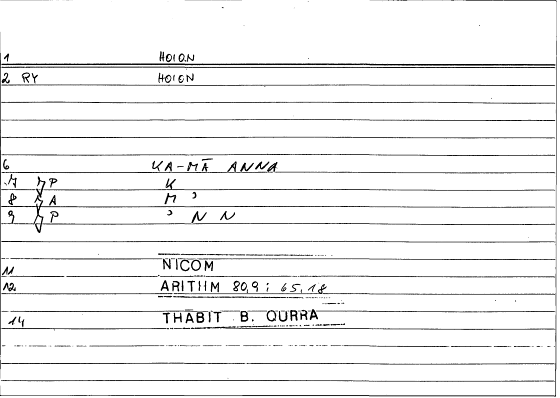 1 HOION
2 RY HOION
6 KA-MĀ ANNA
7 P K
8 A M ʾ
9 P ʾ N N
11 NICOM
12 ARITHM 80,9 ; 65,18
14 THĀBIT B. QURRA